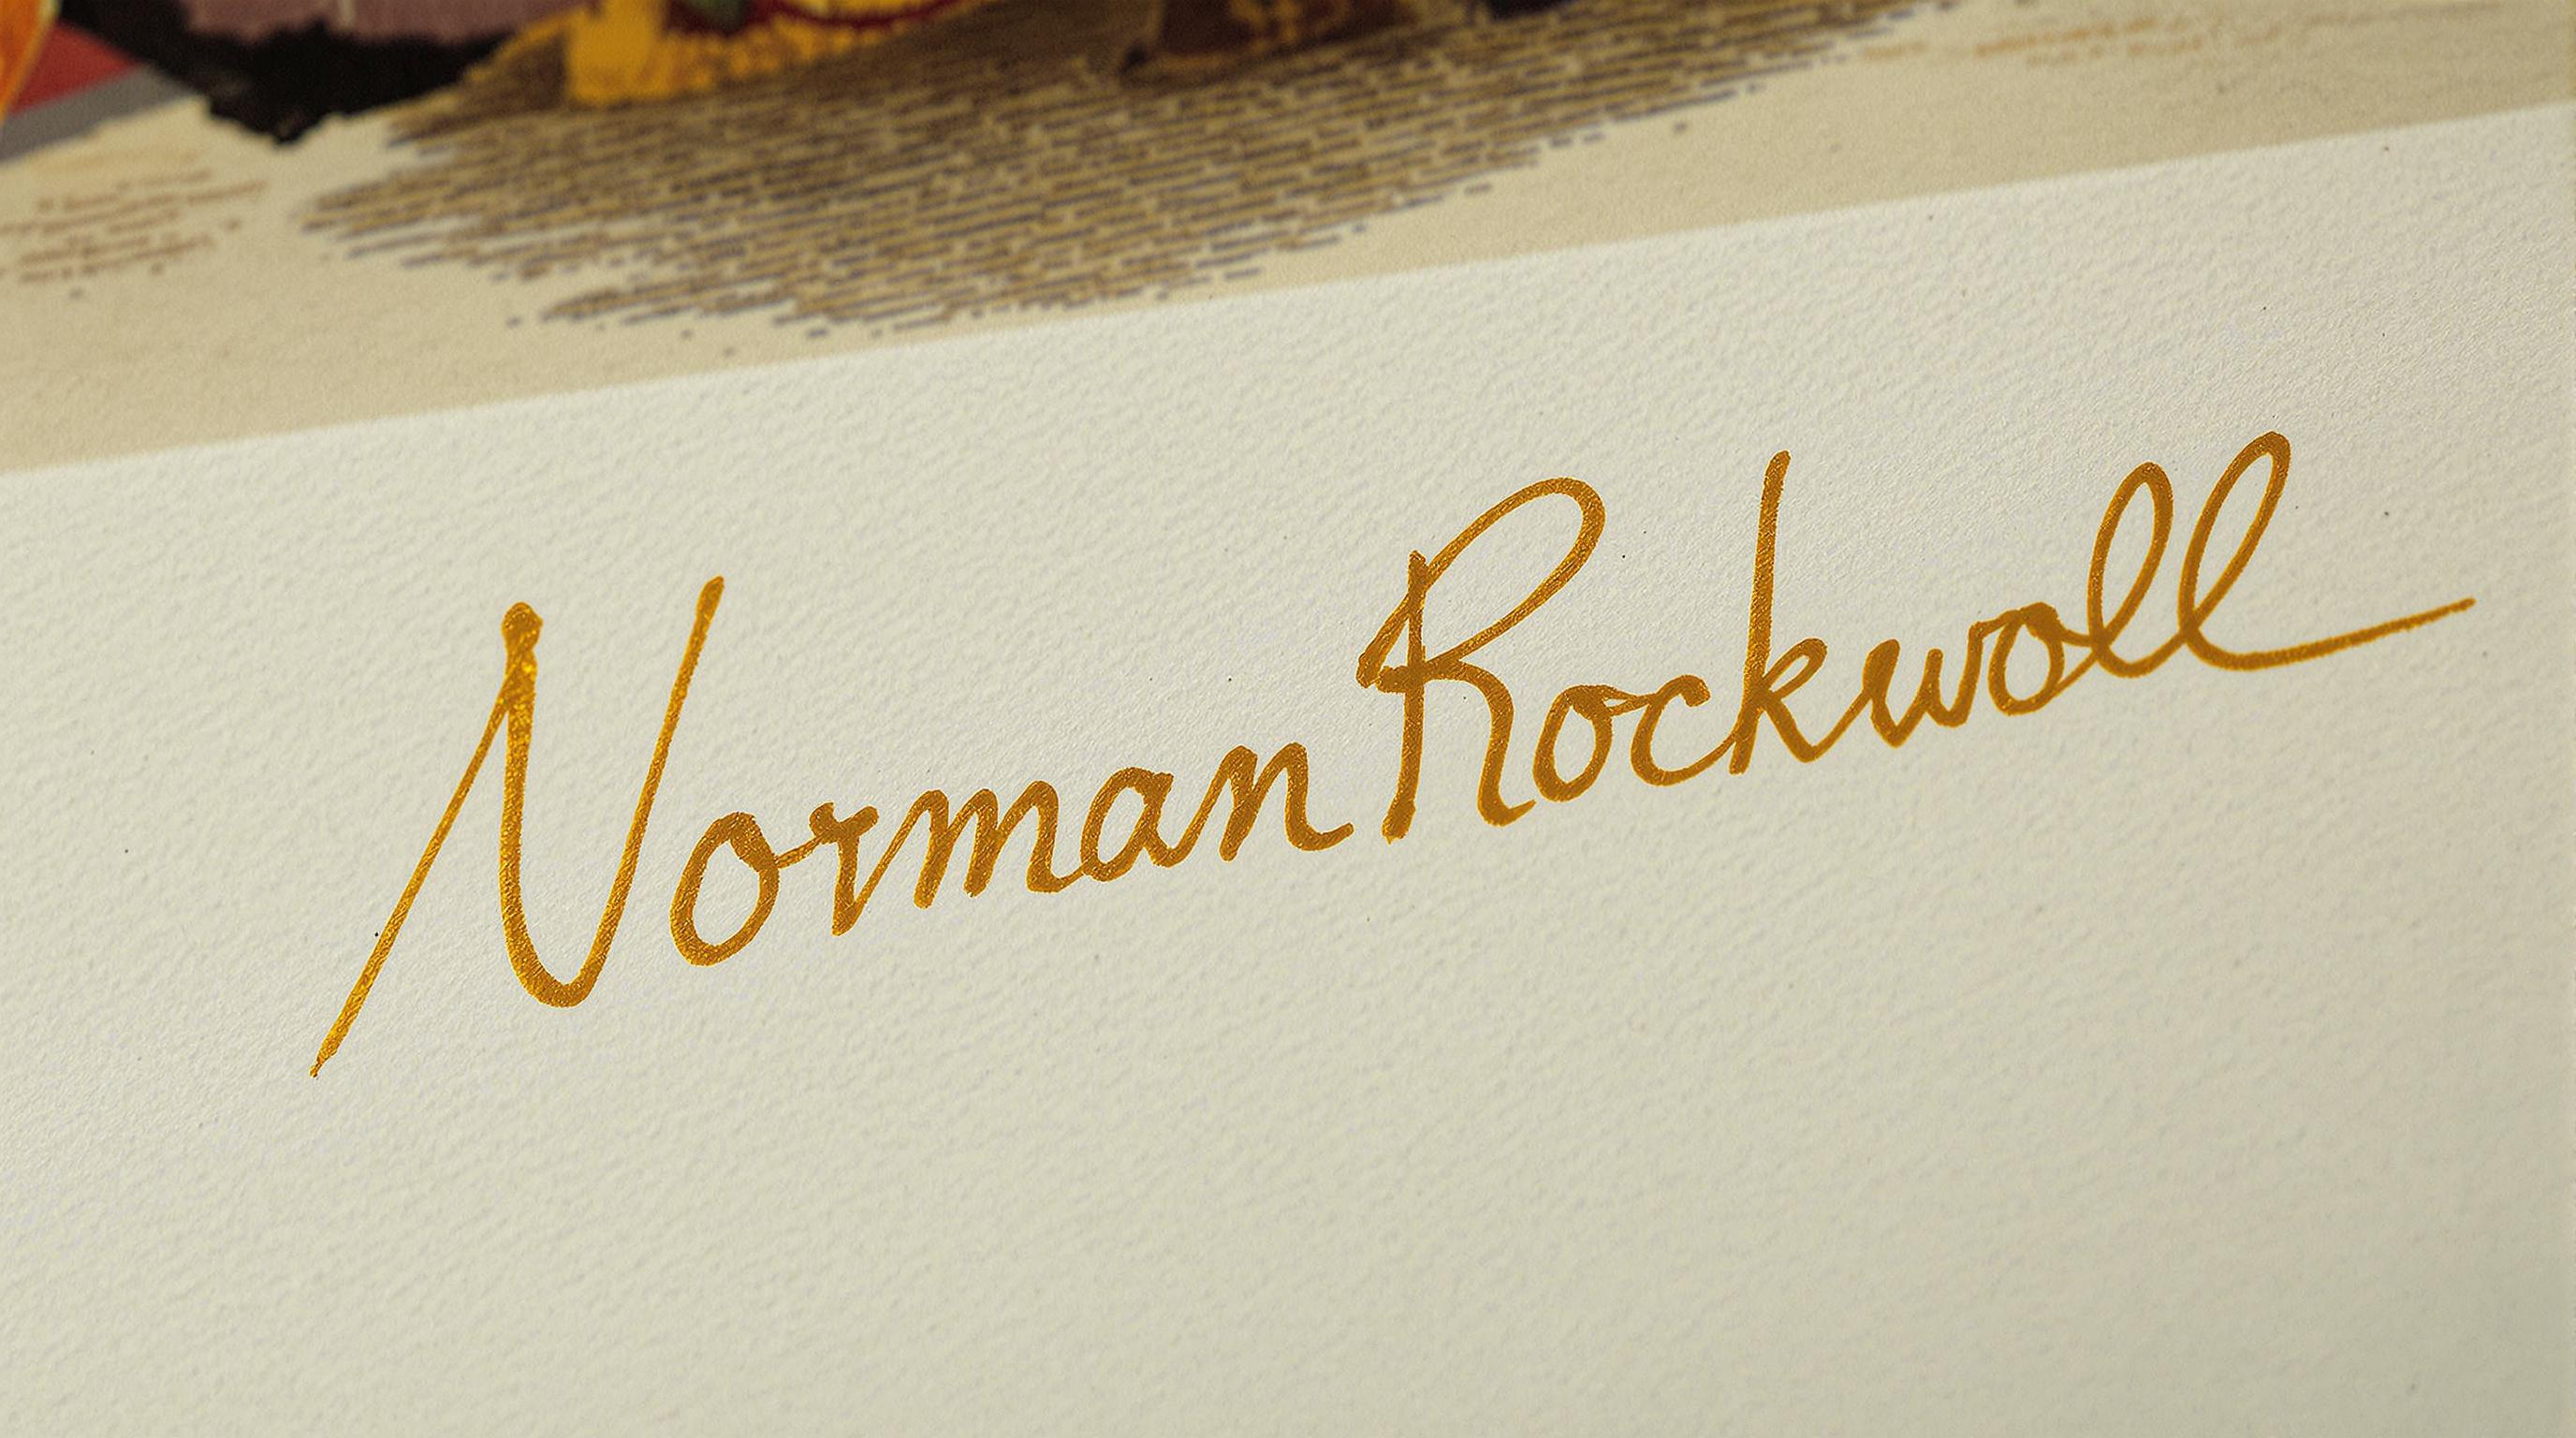 Norman Rockwoll